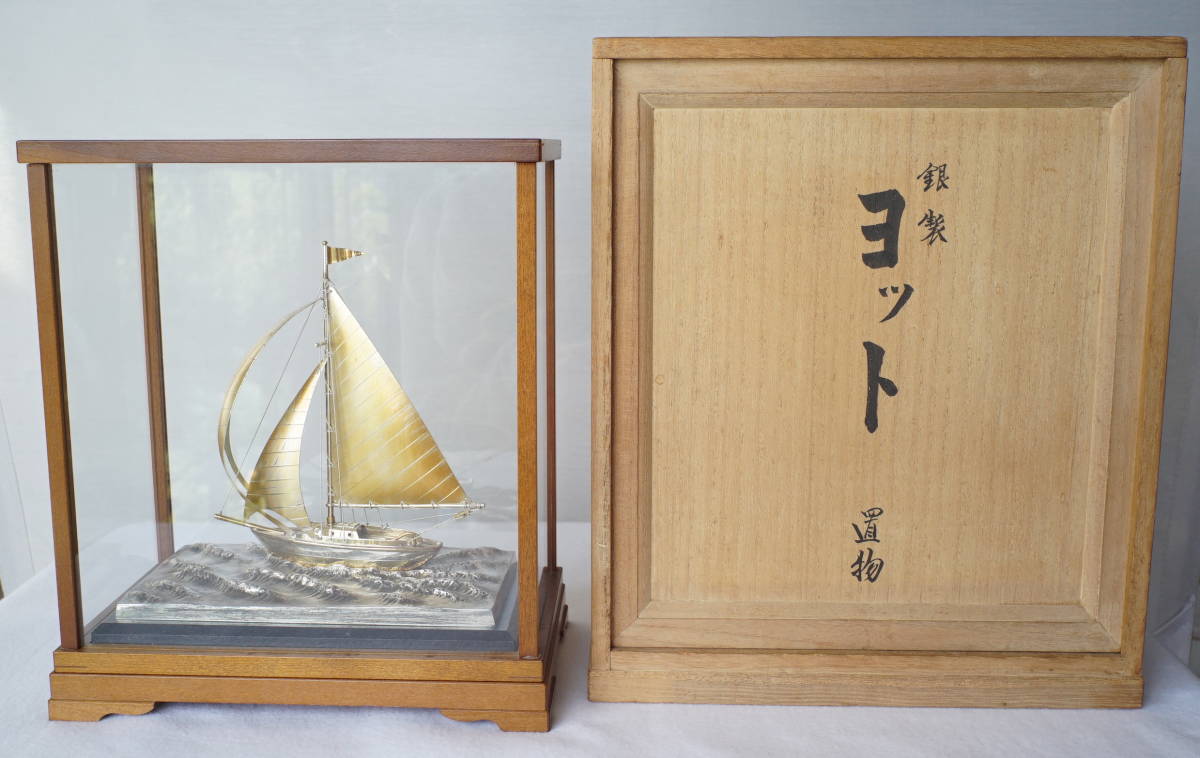 銀製
ヨット
置物